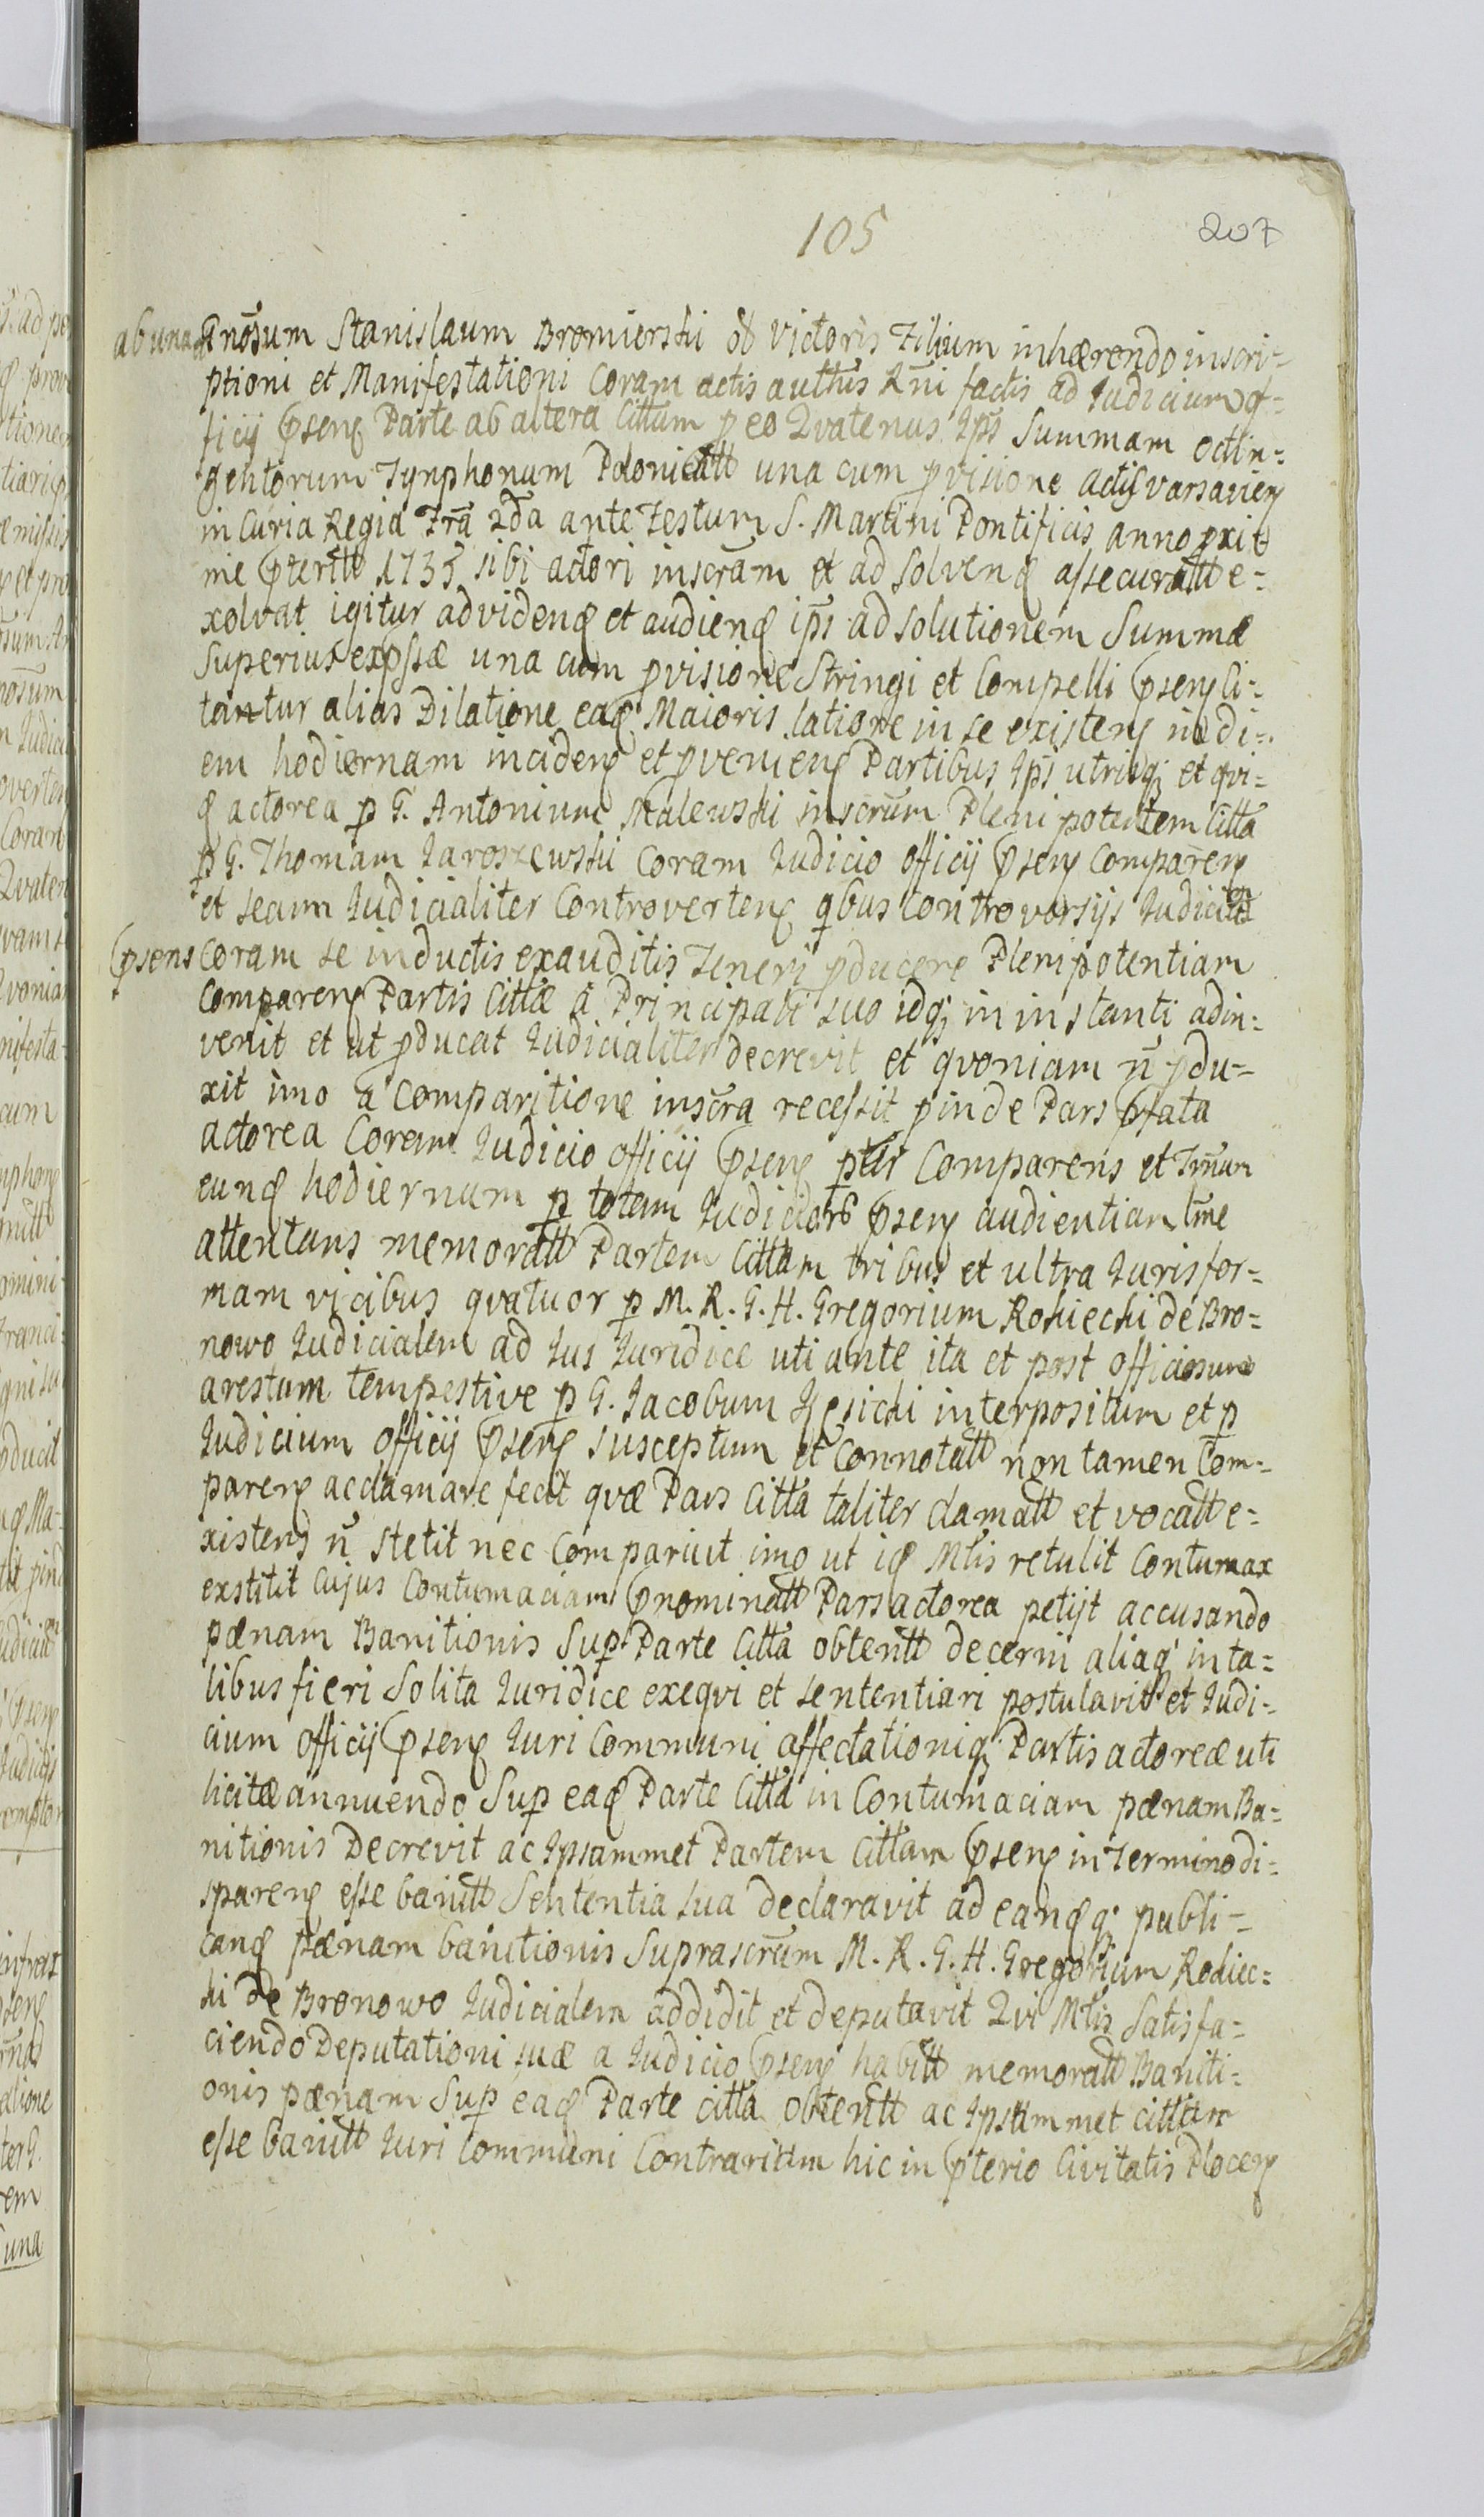 105
207
ab una Gnosum Stanislaum Bromierski ol Victoris Filium inhærendo inscri=
ptioni et Manifestationi Coram actis authis Rñi factis ad Iudicium of=
ficij pseng Parte ab altera Cittum p eo Qvatenus Ips Summam octin=
gentorum Tynphonum Polonicatt una cum pvisione Actis Varsavien
in Curia Regia Fra 2da ante Festum S. Martini Pontificis anno pxi
me pteritt 1735 sibi actori inscram et ad solvend assecuratt e=
xolvat igitur ad videnđ et audienđ ips ad solutionem Summæ
Superius expssæ una cum pvisione Stringi et Compelli pseng Ci=
tantur alias Dilatione eađ Maioris ratione in se existeng in di=
em hodiernam incideng et pvenieng Partibus Ips utrisq; et qvi=
đ actorea p G. Antonium Malewski inscrum Plenipotentem Citta
p G. Thomam Jaroszewski Coram Iudicio officij pseng Compareng
et secum Iudicialiter Controverteng qbus Controversijs Iudicium
psens Coram se inductis exauditis Teneri pducere Plenipotentiam
Compareng Partis Cittæ a Principali suo idq; in instanti adin=
venit et ut pducat Iudicialiter decrevit et qvoniam ñ pdu=
xit imo a Comparitione inscra recessit pinde Pars pfata
actorea Coram Iudicio officij pseng ptr Comparens et Trnum
eunđ hodiernum p totam Iudiciorb pseng audientiam tme
attentans memoratt Partem Cittam tribus et ultra Iuris for=
mam vicibus qvatuor p M. R. G. H. Gregorium Rokiecki de Bro=
nowo Iudicialem ad Ius Iuridice uti ante ita et post officiosum
arestum tempestive p G. Jacobum interpositum et p
Iudicium officij pseng susceptum et Connotatt non tamen Com=
pareng acclamare fecit qvæ Pars Citta taliter clamatt et vocatt e=
xistens ñ stetit nec Comparuit imo ut iđ Mtis retulit Contumax
exstitit Cujus Contumaciam pnominatt Pars actorea petijt accusando
pænam Banitionis Sup Parte Citta obtentt decerni aliaq in ta=
libus fieri Solita Iuridice exeqvi et sententiari postulavit et Iudi=
cium officij pseng Iuri Communi affectationiq; Partis actoreæ uti
licitæ annuendo Sup eađ Parte Citta in Contumaciam pænam Ba=
nitionis Decrevit ac Ipsammet Partem Cittam pseng in Termino di=
spareng esse banitt Sententia sua declaravit ad eanđq; publi=
canđ pænam banitionis Suprascrum M. R. G. H. Gregorium Rokiec=
ki de Bronowo Iudicialem addidit et deputavit Qvi Mtis Satisfa=
ciendo Deputationi suæ a Iudicio pseng habitt memoratt Baniti=
onis pænam Sup eađ Parte citta obtentt ac Ipsammet cittam
esse banitt Iuri Communi Contrarium hic in pterio Civitatis Ploceng